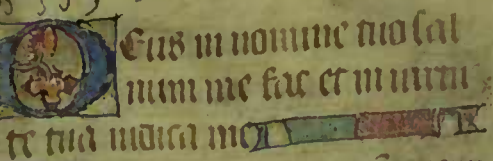 Deus in nomine tuo sal
uum me fac et in uirtu
te tua iudica me